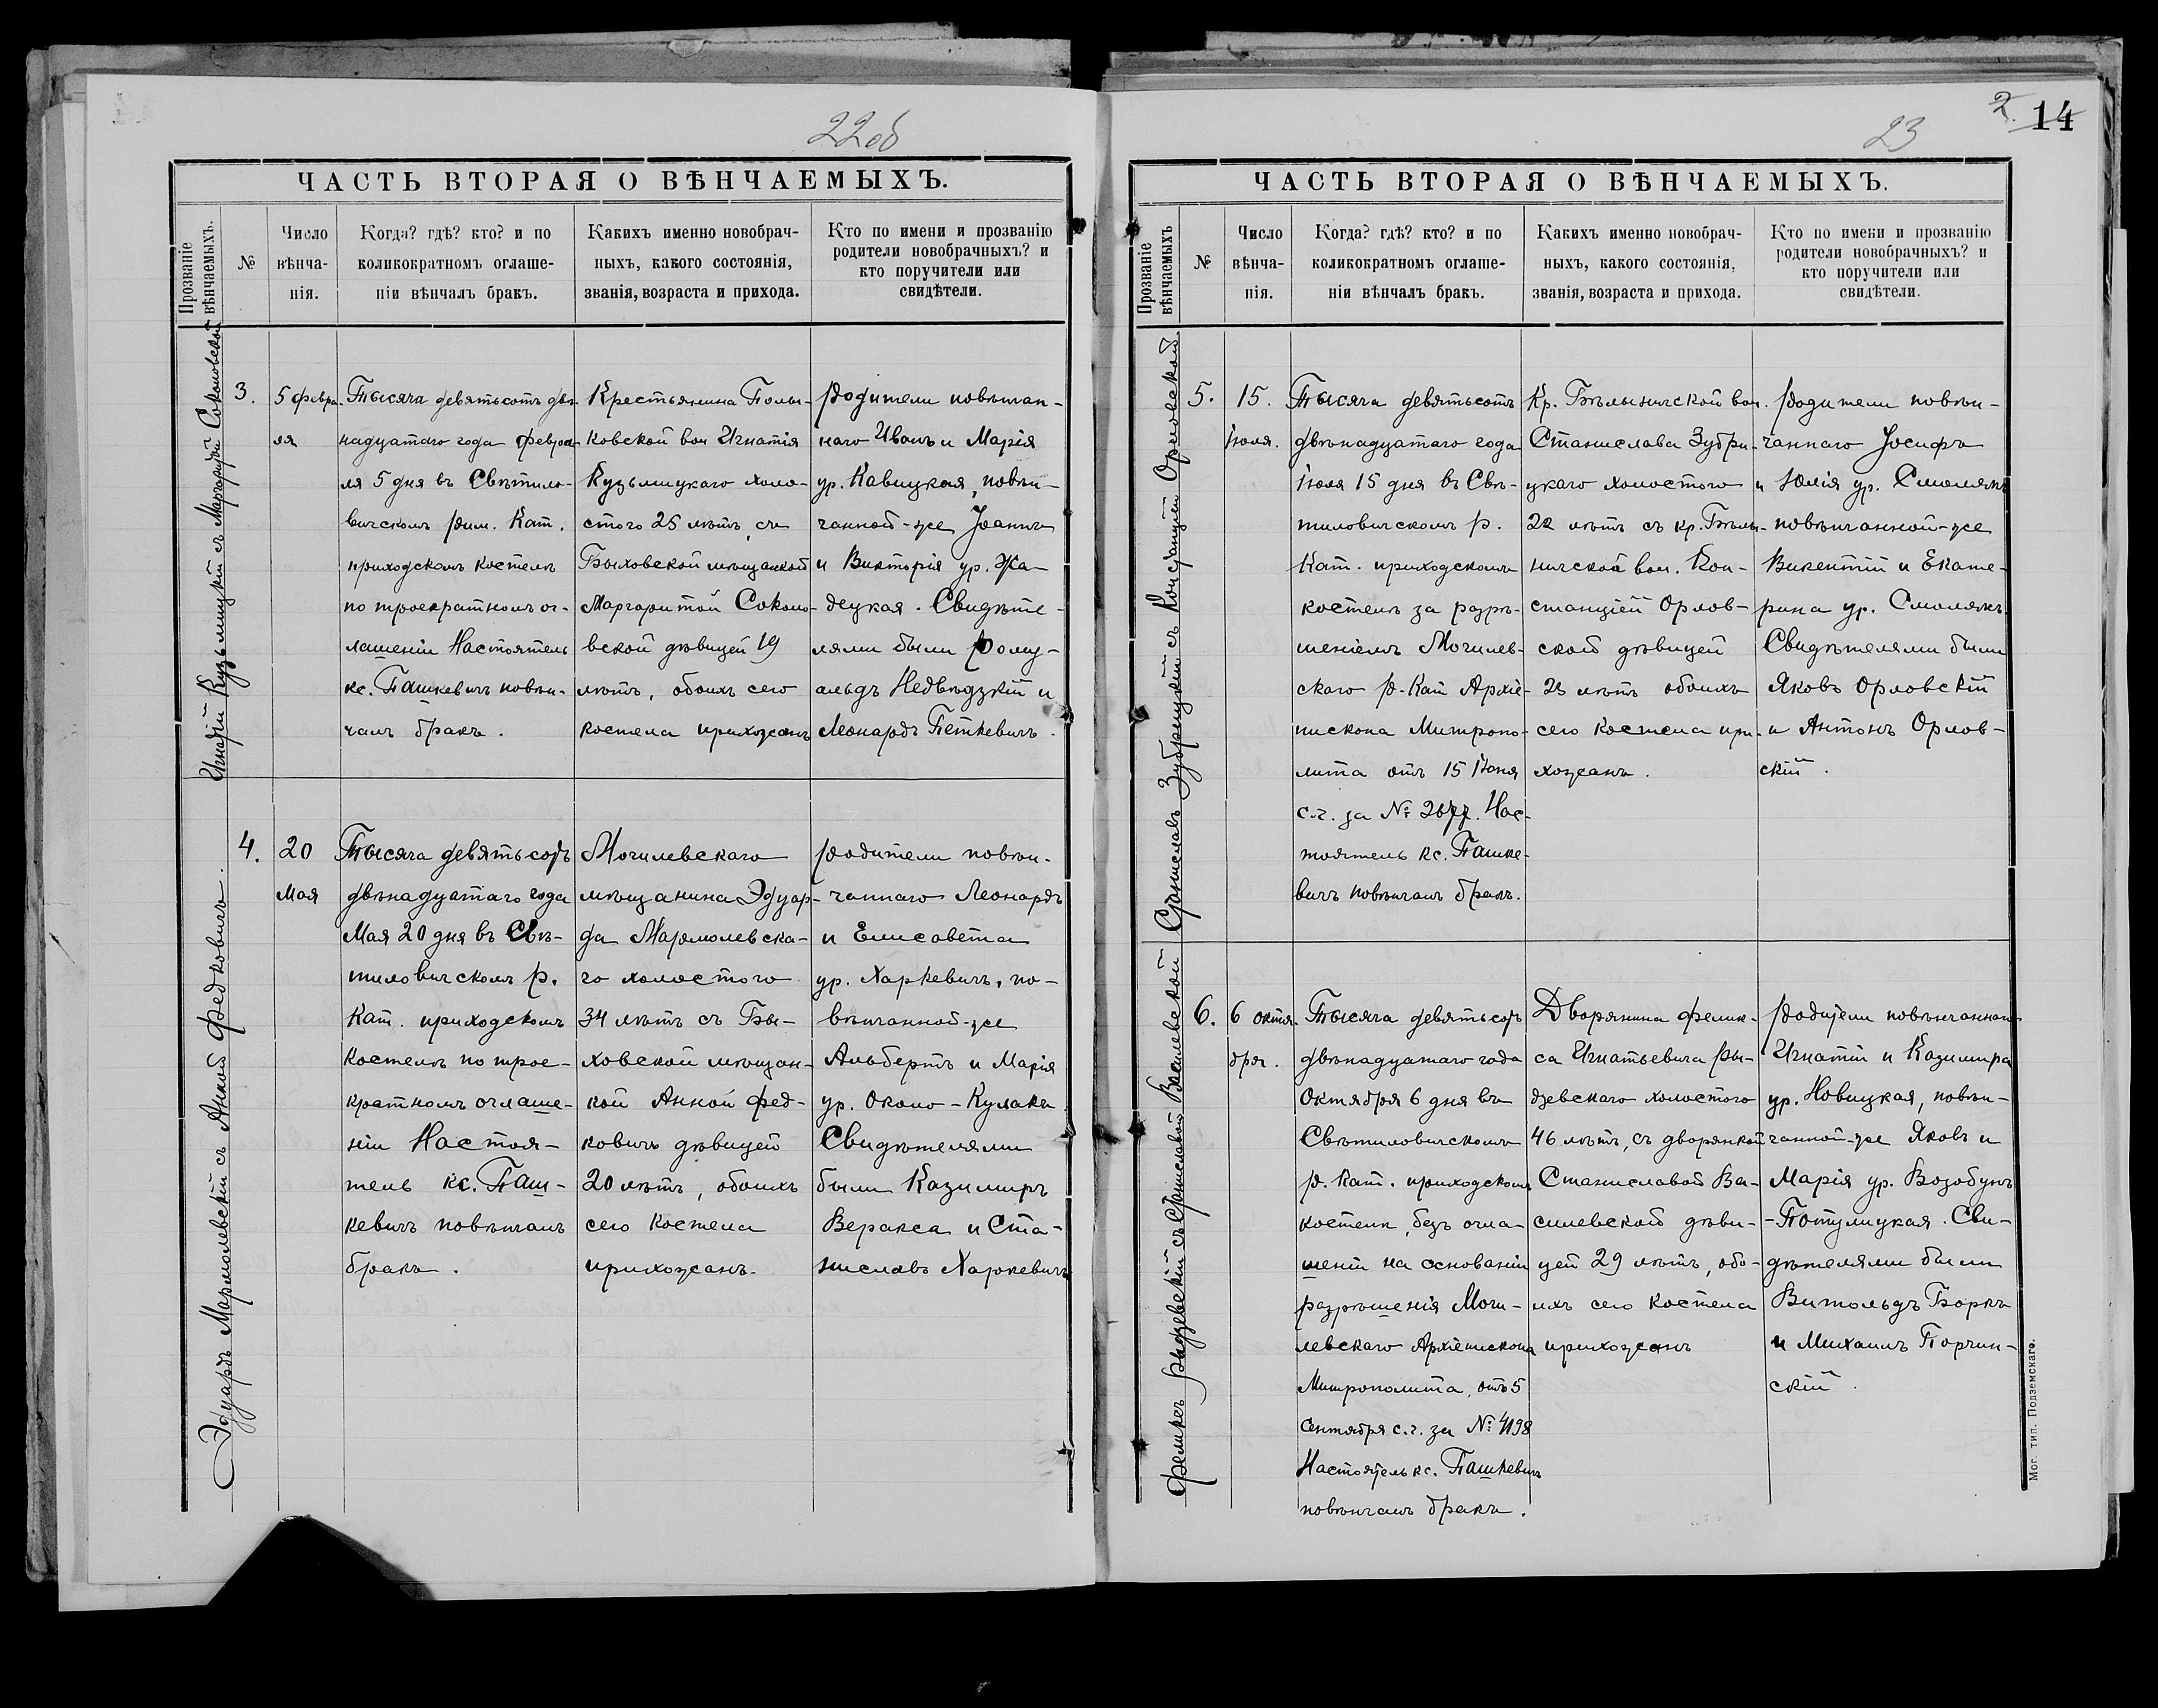 22об
ЧАСТЬ ВТОРАЯ О ВѢНЧАЕМЫХЪ.
Прозваніе вѣнчаемыхъ.
№
Число вѣнча-нія.
Когда? гдѣ? кто? и по коликократномъ оглаше-ніи вѣнчалъ бракъ.
Какихъ именно новобрач-ныхъ, какого состоянія, званія, возраста и прихода.
Кто по имени и прозванію родители новобрачныхъ? и кто поручители или свидѣтели.
Игнатій Кузьмицкій съ Маргаритой Соколовской
3.
5 февра-
ля
Тысяча девятьсотъ двѣ-
надцатаго года Февра-
ля 5 дня въ Свѣтило-
вичскомъ рим. Кат.
приходскомъ костелѣ
по троекратномъ ог-
лашеніи Настоятель
кс. Пашкевичъ повѣн-
чалъ бракъ.
Крестьянина Полы-
ковской вол Игнатія
Кузьмицкаго холо-
стого 25 лѣтъ, съ
Быховской мѣщанкой
Маргаритой Соколо-
вской дѣвицей 19
лѣтъ, обоихъ сего
костела прихожанъ
Родители повѣнчан-
наго Иванъ и Марія
ур. Кавицкая, повѣн-
чанной-же Іоаннъ
и Викторія ур. Жа-
децкая. Свидѣте-
лями были Рому-
альдъ Недвѣдзкій и
Леонардъ Петкевичъ.
Эдуардъ Мармолевскій съ Анной Федковичъ.
4.
20
Мая
Тысяча девятьсотъ
двѣнадцатаго года
Мая 20 дня въ Свѣ-
тиловичскомъ р.
Кат. приходскомъ
костелѣ по трое-
кратномъ оглаше-
ніи Настоя-
тель кс. Паш-
кевичъ повѣнчалъ
бракъ.
Могилевскаго
мѣщанина Эдуар-
да Мармолевска-
го холостого
34 лѣтъ съ Бы-
ховской мѣщан-
кой Анной Фед-
ковичъ дѣвицей
20 лѣтъ, обоихъ
сего костела
прихожанъ.
Родители повѣн-
чаннаго Леонардъ
и Елисавета
ур. Харкевичъ, по-
вѣнчанной-же
Альбертъ и Марія
ур. Около-Кулака.
Свидѣтелями
были Казимиръ
Веракса и Ста-
ниславъ Харкевичъ
23
2. 14
ЧАСТЬ ВТОРАЯ О ВѢНЧАЕМЫХЪ.
Прозваніе вѣнчаемыхъ
№
Число вѣнча-нія.
Когда? гдѣ? кто? и по коликократномъ оглаше-ніи вѣнчалъ бракъ.
Какихъ именно новобрач-ныхъ, какого состоянія, званія, возраста и прихода.
Кто по имени и прозванію родители новобрачныхъ? и кто поручители или свидѣтели.
Станиславъ Зубрицкій съ Констанціей Орловской
5.
15.
Іюля.
Тысяча девятьсотъ
двѣнадцатаго года
Іюля 15 дня въ Свѣ-
тиловичскомъ р.
Кат. приходскомъ
костелѣ за разрѣ-
шеніемъ Могилев-
скаго р. Кат Архіе-
пископа Митропо-
лита отъ 15 Іюня
с.г. за № 2677. Нас-
тоятель кс. Пашке-
вичъ повѣнчалъ бракъ.
Кр. Бѣлыничской вол.
Станислава Зубри-
цкаго холостого
22 лѣтъ съ кр. Бѣлы-
ничской вол. Кон-
станціей Орлов-
ской дѣвицей
23 лѣтъ обоихъ
сего костела при-
хожанъ.
Родители повѣн-
чаннаго Іосифъ
и Юлія ур. Смолякъ
повѣнчанной-же
Викентій и Екате-
рина ур. Смолякъ.
Свидѣтелями были
Яковъ Орловскій
и Антонъ Орлов-
скій.
Феликсъ Рыдзевскій съ Станиславой Василевской
6.
6 октя-
бря.
Тысяча девятьсотъ
двѣнадцатаго года
Октября 6 дня въ
Свѣтиловичскомъ
р. Кат. приходскомъ
костелѣ, безъ огла-
шеній на основаніи
разрѣшенія Моги-
левскаго Архіепископа
Митрополита, отъ 5
Сентября с.г. за № 4198
Настоятель кс. Пашкевичъ
повѣнчалъ бракъ.
Дворянина Фелик-
са Игнатьевича Ры-
дзевскаго холостого
46 лѣтъ, съ дворянкой
Станиславой Ва-
силевской дѣви-
цей 29 лѣтъ, обо-
ихъ сего костела
прихожанъ
Родители повѣнчаннаго
Игнатій и Казимира
ур. Новицкая, повѣн-
чанной-же Яковъ и
Марія ур. Возобунъ
-Потулицкая. Сви-
дѣтелями были
Витольдъ Боркъ
и Михаилъ Порчин-
скій.
Мог. тип. Подземскаго.